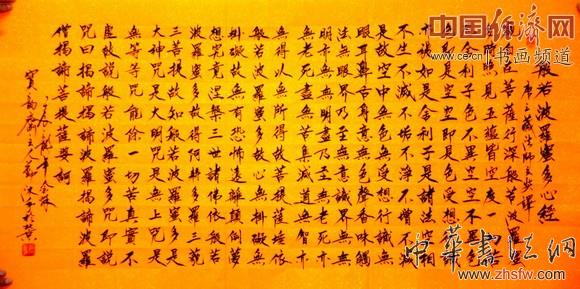 中国经济网
www.ce.cn 书画频道
般若波羅蜜多心經
唐三藏法師玄奘譯
觀自在菩薩行深般若波羅
蜜多時照見五蘊皆空度一切
苦厄舍利子色不異空空不異色
色即是空空即是色受想
行識亦復如是舍利子是諸法空相
不生不滅不垢不淨不增不減
是故空中無色無受想行識無
眼耳鼻舌身意無色聲香味觸
法無眼界乃至無意識界無無
明亦無無明盡乃至無老死亦
無老死盡無苦集滅道無智亦
無得以無所得故菩提薩埵依
般若波羅蜜多故心無掛礙無
掛礙故無有恐怖遠離顛倒夢
想究竟涅槃三世諸佛依般若
波羅蜜多故得阿耨多羅三藐
三菩提故知般若波羅蜜多是
大神咒是大明咒是無上咒是
無等等咒能除一切苦真實不
虛故說般若波羅蜜多咒即說
咒曰揭諦揭諦波羅揭諦波羅
僧揭諦菩提薩婆訶
中華書法網
www.zhsfw.com